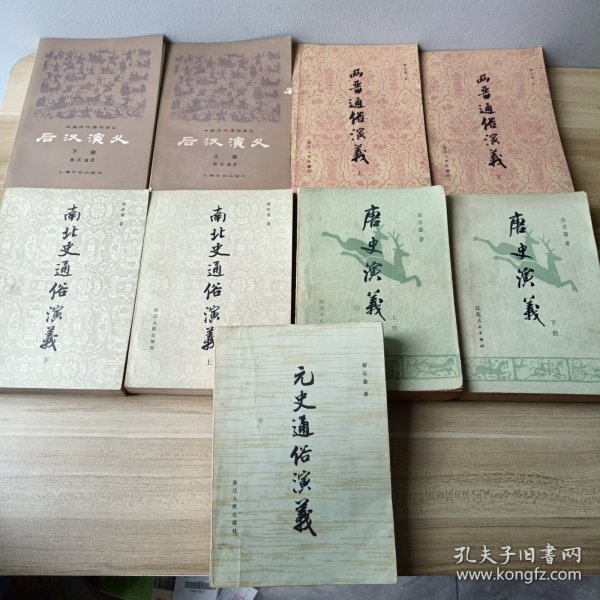 中国历代通俗演义
后汉演义
下册
蔡东藩著
上海文化出版社
中国历代通俗演义
后汉演义
上册
蔡东藩著
上海文化出版社
两晋通俗演義
上
两晋通俗演義
下
蔡东藩 著
南北史通俗演義
下
蔡东藩 著
南北史通俗演義
上
浙江人民出版社
蔡东藩 著
唐史演義
上册
江苏人
蔡东藩 著
唐史演義
下册
江苏人民出版社
蔡东藩 著
元史通俗演義
浙江人民出版社
孔夫子旧书网
www.kongfz.com